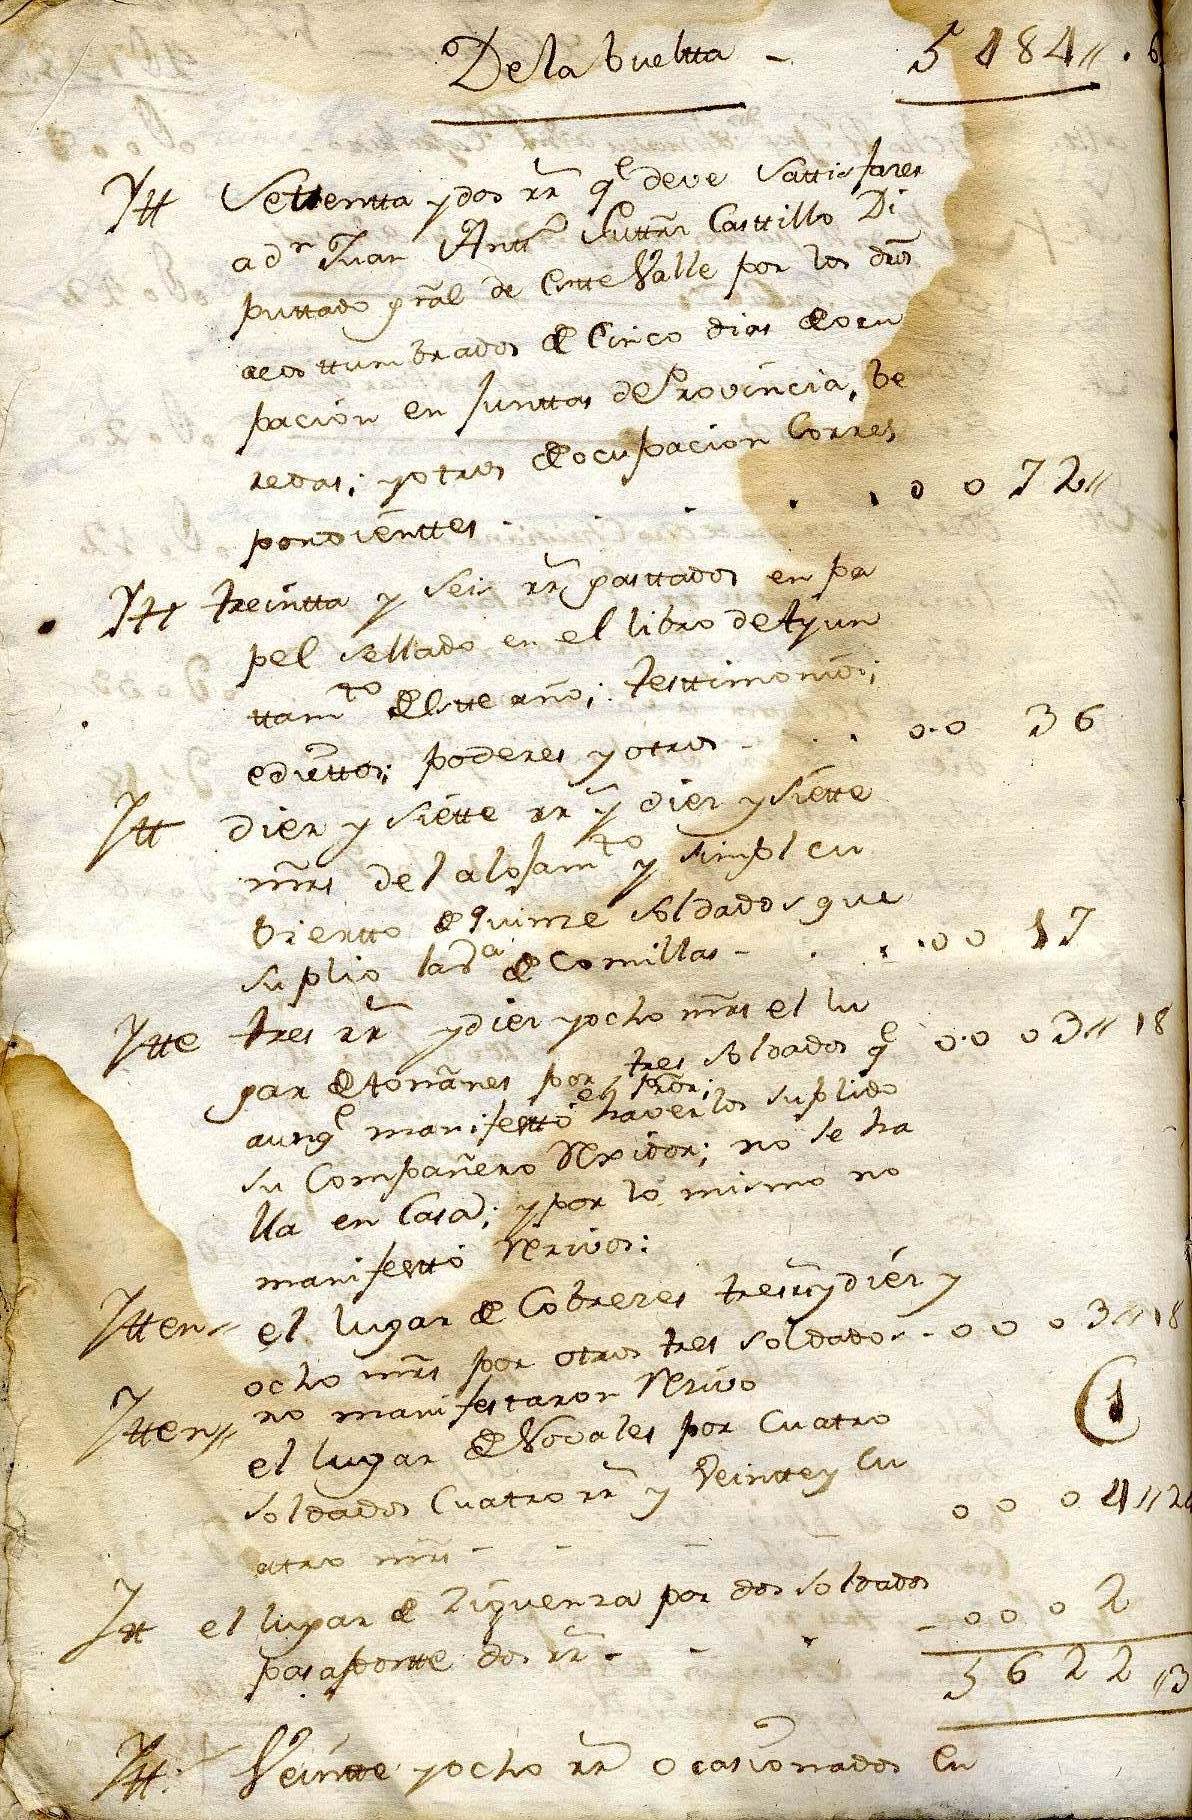 De la bueltta - 5484 // . 6
Ytt Settentta y dos rr.s q.e deve sattisfarer
a d.n Juan Antt.o Gutt.rr Casttillo Di
puttado gral de estte Valle por los dros
acosttumbrados de Cinco dias de ocu
pacion en Junttas de Provincia, be
redas; y otros de ocupacion Corres
pondienttes . . . . . 0072 //
Ytt treintta y seis rr.s gasttados en pa
pel sellado en el libro de Ayun
ttam.to de estte año; testtimonios;
edicttos; poderes y otros - . . 00 36
Ytt diez y siette rr.s y diez y siette
mrs del alojam.to y simpl cu
biertto de quinze soldados que
suplio la V.a de Comillas - . . . 00 17
Ytte tres rr.s y diez y ocho mrs el lu
gar de toñanes por tres soldados q.e 00 03 // 18
aunq.e manifesttó el Pror; haverlos suplido
su Compañero Rexidor; no se ha
lla en Casa; y por lo mismo no
manifesttó Rezivos:
Ytten // el lugar de Cobreres tres rr.s y diez y
ocho mrs por otros tres soldados - 0003 // 18
no manifestaron Rezivo
Ytten // el lugar de Novales por Cuatro (1)
soldados Cuatro rr.s y Veinttey Cu
atro mrs - - - 0004 // 24
Ytt el lugar de Ziguenza por dos soldados
pasaportte dos rr.s - - . - 0002
5622 // 3
Ytt. Veintte y ocho rr.s ocasionados En